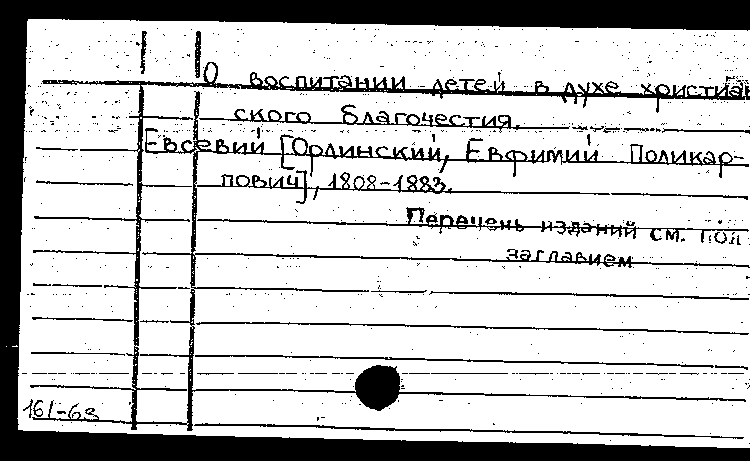 О воспитании детей в духе христиан
ского благочестия.
Евсевий [Орлинский, Евфимий Поликар-
пович], 1808-1883.
Перечень изданий см. под
заглавием
161-63